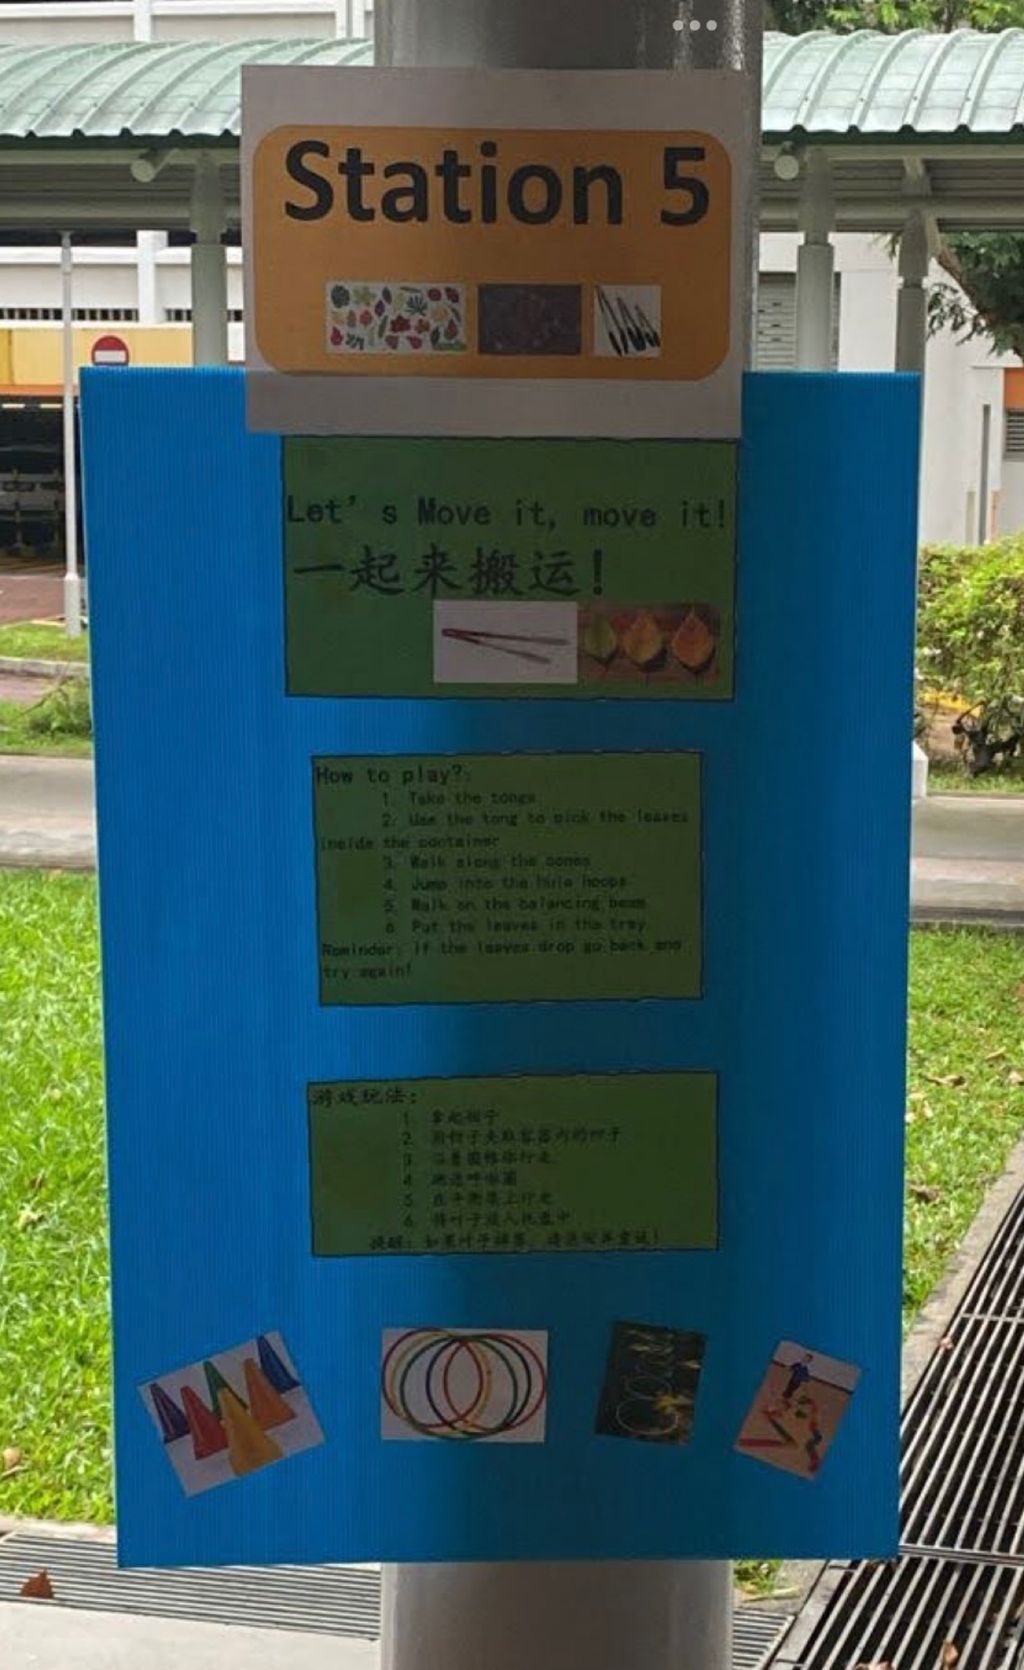 Station 5
Let's Move it, move it!
一起来搬运!
How to play?:
1. Take the tongs
2. Use the tong to pick the leaves
inside the container
3. Walk along the cones
4. Jump into the hula hoops
5. Walk on the balancing beam
6 Put the leaves in the tray
Reminder: if the leaves drop go back and
try again!
游戏玩法:
1. 拿起钳子
2. 用钳子夹取容器内的叶子
3
4. 跳进呼啦圈
5 在平衡梁上行走
6. 将叶子放入托盘中
提醒: 如果叶子掉落, 请返回并重试!